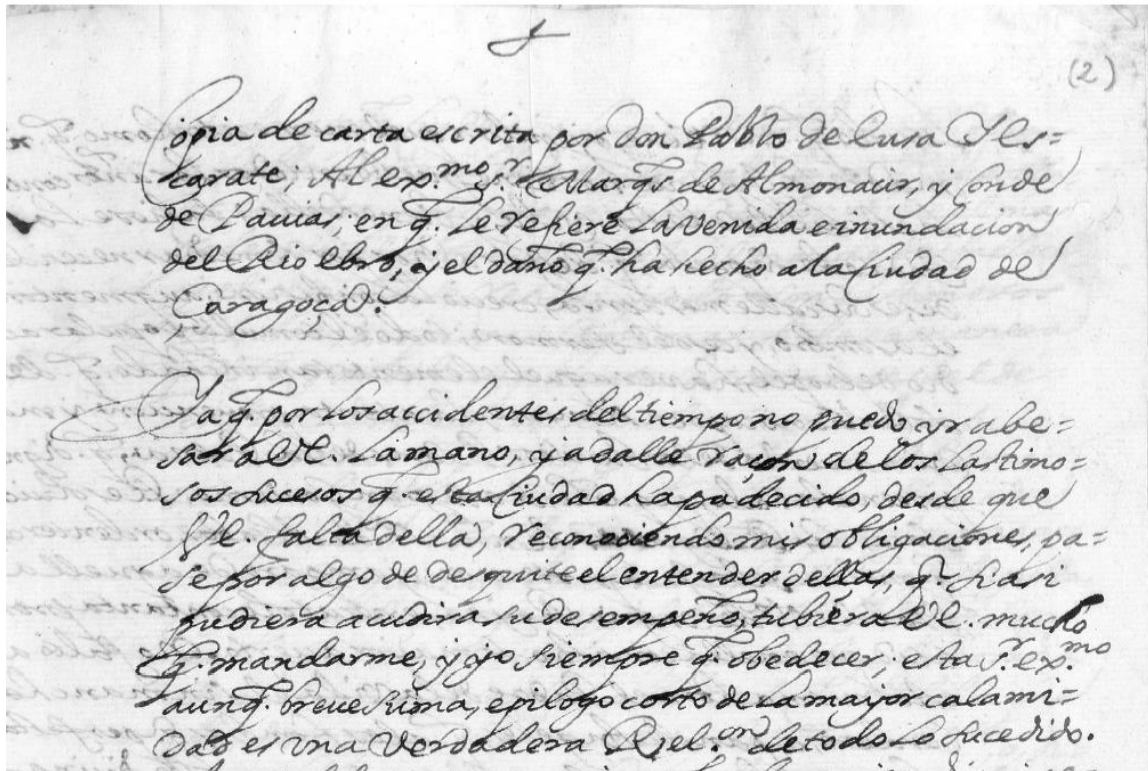 (2)
Copia de carta escrita por Don Pablo de Lusa Y Es=
carate, Al ex.mo s.r Marq̃s de Almonacir, y Conde
de Pavias, en q̃. Le refiere La venida e inundacion
del Rio ebro, y el daño q̃. ha hecho a la Ciudad de
Çaragoça.
Ya q̃. por los accidentes del tiempo no puedo yr a be=
sar a VE. La mano, y a dalle raçon de los Lastimo=
sos sucesos q̃. esta Ciudad ha padecido, desde que
VE. falta della, reconociendo mis obligaciones, pa=
se por algo de desquite el entender dellas, q̃. si asi
pudiera acudir a su desempeño, tubiera VE. mucho
q̃. mandarme, y yo siempre q̃. obedecer, esta s.r ex.mo
aunq̃. breve suma, epilogo corto de la mayor calami=
dad es una Verdadera Rel.on de todo Lo sucedido.